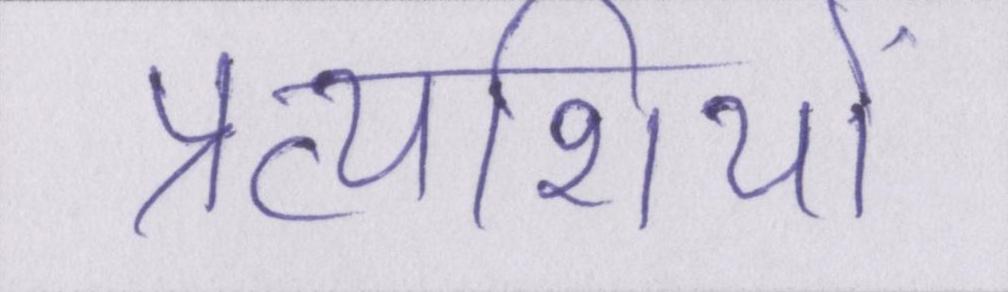 प्रत्यशियों